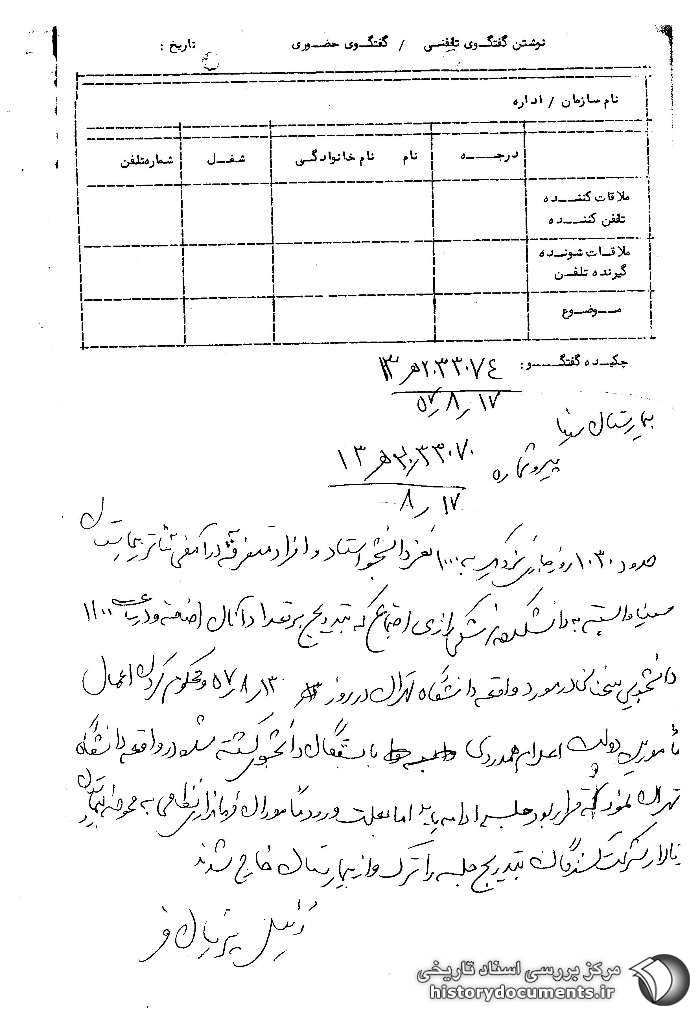 نوشتن گفتگوی تلفنی / گفتگوی حضوری تاریخ :
نام سازمان / اداره
درجه نام نام خانوادگی شغل شماره تلفن
ملاقات کننده
تلفن کننده
ملاقات شونده
گیرنده تلفن
موضوع
چکیده گفتگو :
۵۷/۸/۱۷
بیمارستان سینا
پیرو شماره
۸/۱۷
حدود ۱۰۳۰ روز جاری نزدیک به ۱۰۰۰ نفر دانشجو استاد و افراد متفرقه در آمفی تئاتر بیمارستان
سینا وابسته به دانشکده پزشکی رازی اجتماع که بتدریج بر تعداد آنان اضافه و در ساعت ۱۱۰۰
دانشجویی سخنانی در مورد واقعه دانشگاه تهران در روز ۵۷/۸/۱۳ و محکوم کردن اعمال
مأمورین دولت اعلام همدردی با بستگان دانشجوی کشته شده در واقعه دانشگاه
تهران نمود که قرار بود جلسه ادامه یابد اما بعلت ورود مأموران فرمانداری نظامی به محوطه بیمارستان
شرکت کنندگان بتدریج جلسه را ترک و از بیمارستان خارج شدند
مرکز بررسی اسناد تاریخی
historydocuments.ir